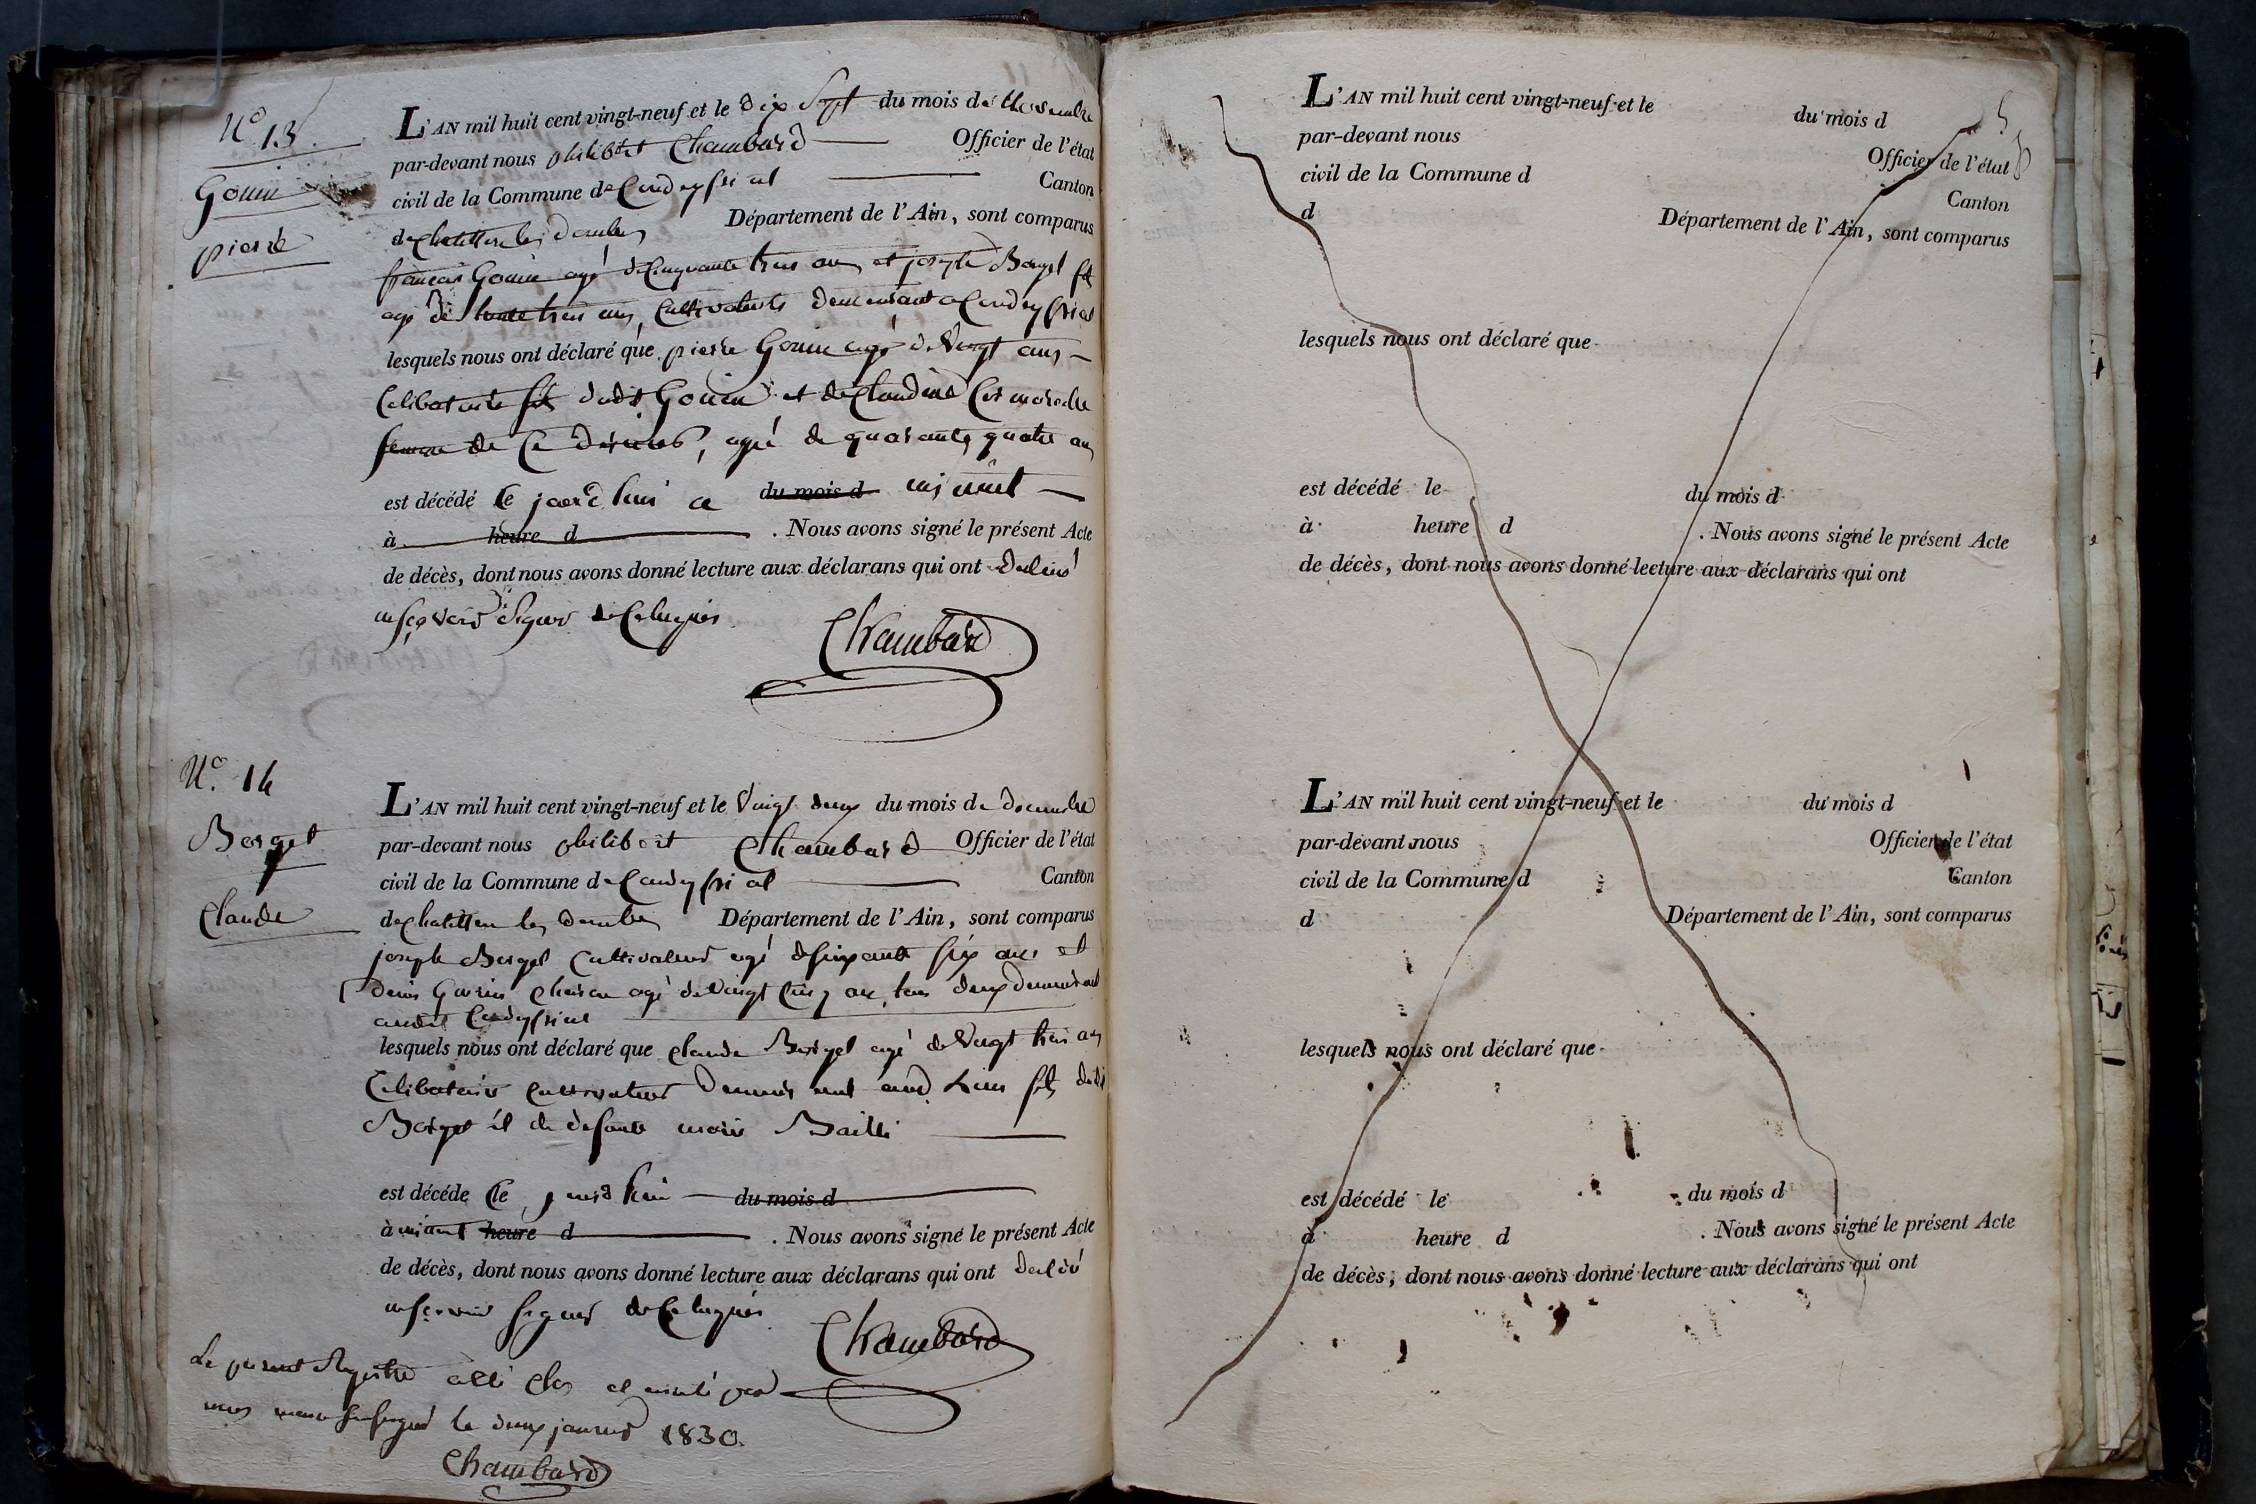 N.o 13.
Gouin
pierre
L'AN mil huit cent vingt-neuf et le dix Sept du mois de
par-devant nous philibert Chambard Officier de l'état
civil de la Commune de Condeyssiat Canton
de chatillon les Dombes Département de l'Ain, sont comparus
francois Gouin agé de Cinquante trois ans et joseph Borgel fils
agé de trente trois ans, Cultivateurs demeurant a Condeyssiat
lesquels nous ont déclaré que pierre Gouin agé de Vingt ans
Celibataire fils dudit Gouin et de Claudine
femme de Ce dernier, agé de quarante quatre ans
est décédé le jourd'hui a du mois d minuit
à heure d . Nous avons signé le présent Acte
de décès, dont nous avons donné lecture aux déclarans qui ont déclaré
ne sçavoir Signer de Ce enquis
Chambard
N.o 14
Borget
Claude
L'AN mil huit cent vingt-neuf et le Vingt deux du mois de decembre
par-devant nous philibert Chambard Officier de l'état
civil de la Commune de Condeyssiat Canton
de chatillon les Dombes Département de l'Ain, sont comparus
joseph Borget Cultivateur agé de soixante six ans et
denis agé de Vingt Cinq ans, tous deux demeurant
audit Condeyssiat
lesquels nous ont déclaré que claude Borget agé de Vingt trois ans
Celibataire Cultivateur demeurant aud. Lieu fils dudit
Borget et de defunte marie Bailli
est décédé le jourd'hui du mois d
à minuit heure d . Nous avons signé le présent Acte
de décès, dont nous avons donné lecture aux déclarans qui ont déclaré
ne sçavoir signer de Ce enquis
Chambard
Le present Registre a été Clos et arreté par
nous maire soussigné le deux janvier 1830.
Chambard
L'AN mil huit cent vingt-neuf et le du mois d
par-devant nous Officier de l'état
civil de la Commune d Canton
d Département de l'Ain, sont comparus
lesquels nous ont déclaré que
est décédé le du mois d
à heure d . Nous avons signé le présent Acte
de décès, dont nous avons donné lecture aux déclarans qui ont
L'AN mil huit cent vingt-neuf et le du mois d
par-devant nous Officier de l'état
civil de la Commune d Canton
d Département de l'Ain, sont comparus
lesquels nous ont déclaré que
est décédé le du mois d
à heure d . Nous avons signé le présent Acte
de décès, dont nous avons donné lecture aux déclarans qui ont